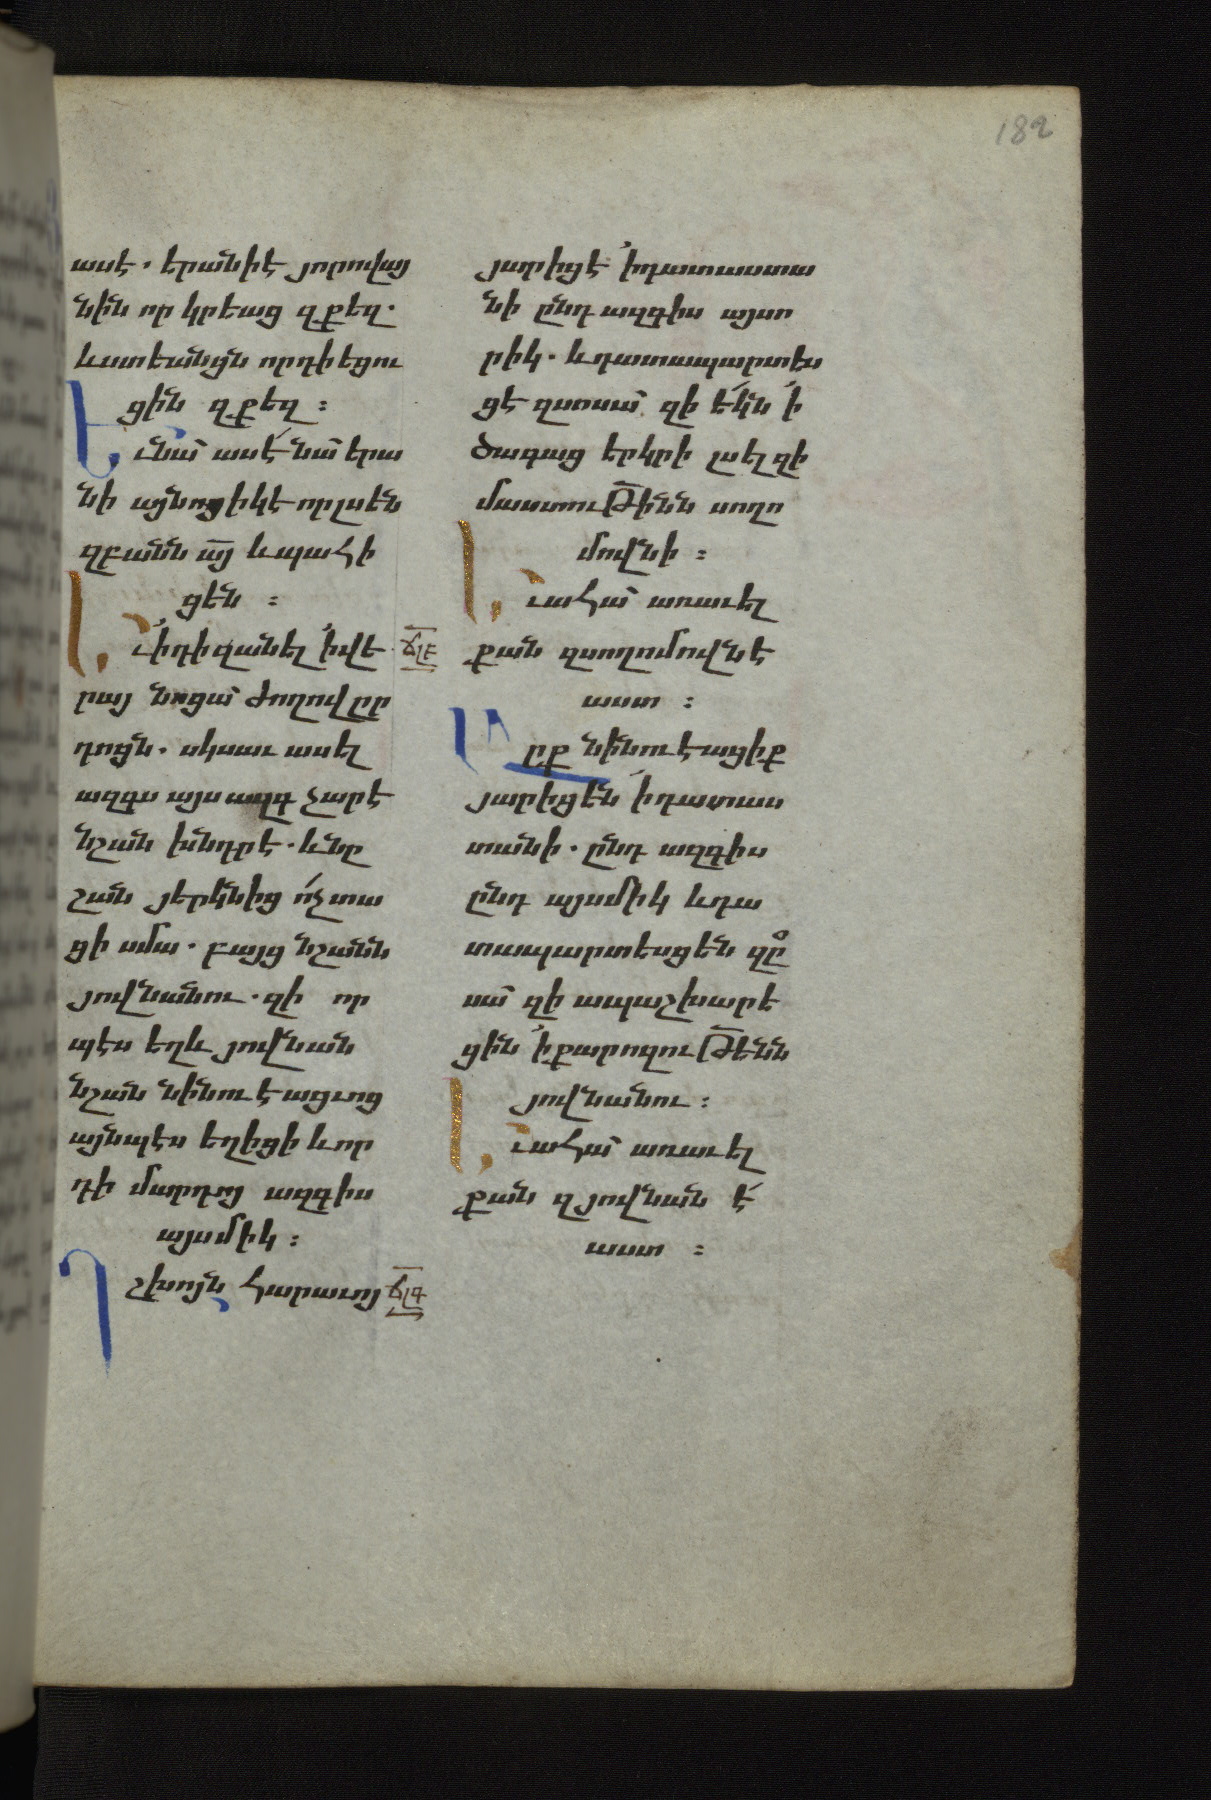 182
ասէ. երանիէ յորովայ
նին որ կրեաց զքեզ.
ևստեանցն որդիեցու
ցին զքեզ :
Եւնա՛ ասէ՛ նա՛ երա
նի այնոցիկէ որլսեն
զբանն ա՟յ ևպահի
ցեն :
Եւ՛իդիզանել ՛իվե
ճլե
րայ նոցա՛ ժողովըր
դոցն. սկսաւ ասել
ազգս այս ազգ չարէ
նշան խնդրէ. ևնը
շան յերկնից ո՛չտա
ցի սմա. բայց նշանն
յովնանու. զի որ
պէս եղև յովնան
նշան նինուէացւոց
այնպէս եղիցի ևոր
դի մարդոյ ազգիս
այսմիկ :
Դշխոյն հարաւոյ
ճլզ
յարիցէ ՛իդատաստա
նի ընդ ազգիս այսո
րիկ. ևդատապարտես
ցէ զսոսա՛ զի ե՛կն ՛ի
ծագաց երկրի լսել զի
մաստութի՟նն սողո
մովնի :
Եւահա՛ առաւել
քան զսողոմովնէ
աստ :
Արք նինուէացիք
յարիցեն ՛իդատաս
տանի. ընդ ազգիս
ընդ այսմիկ ևդա
տապարտեսցեն զը՟
սա՛ զի ապաշխարե
ցին ՛իքարոզութե՟նն
յովնանու :
Եւահա՛ առաւել
քան զյովնան է՛
աստ :